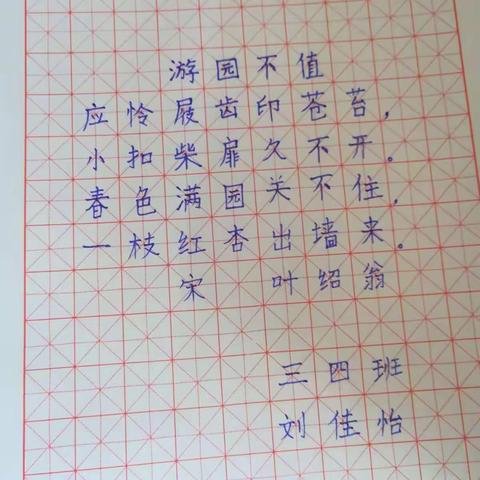 游园不值
应怜屐齿印苍苔,
小扣柴扉久不开。
春色满园关不住,
一枝红杏出墙来。
宋 叶绍翁
三四班
刘佳怡